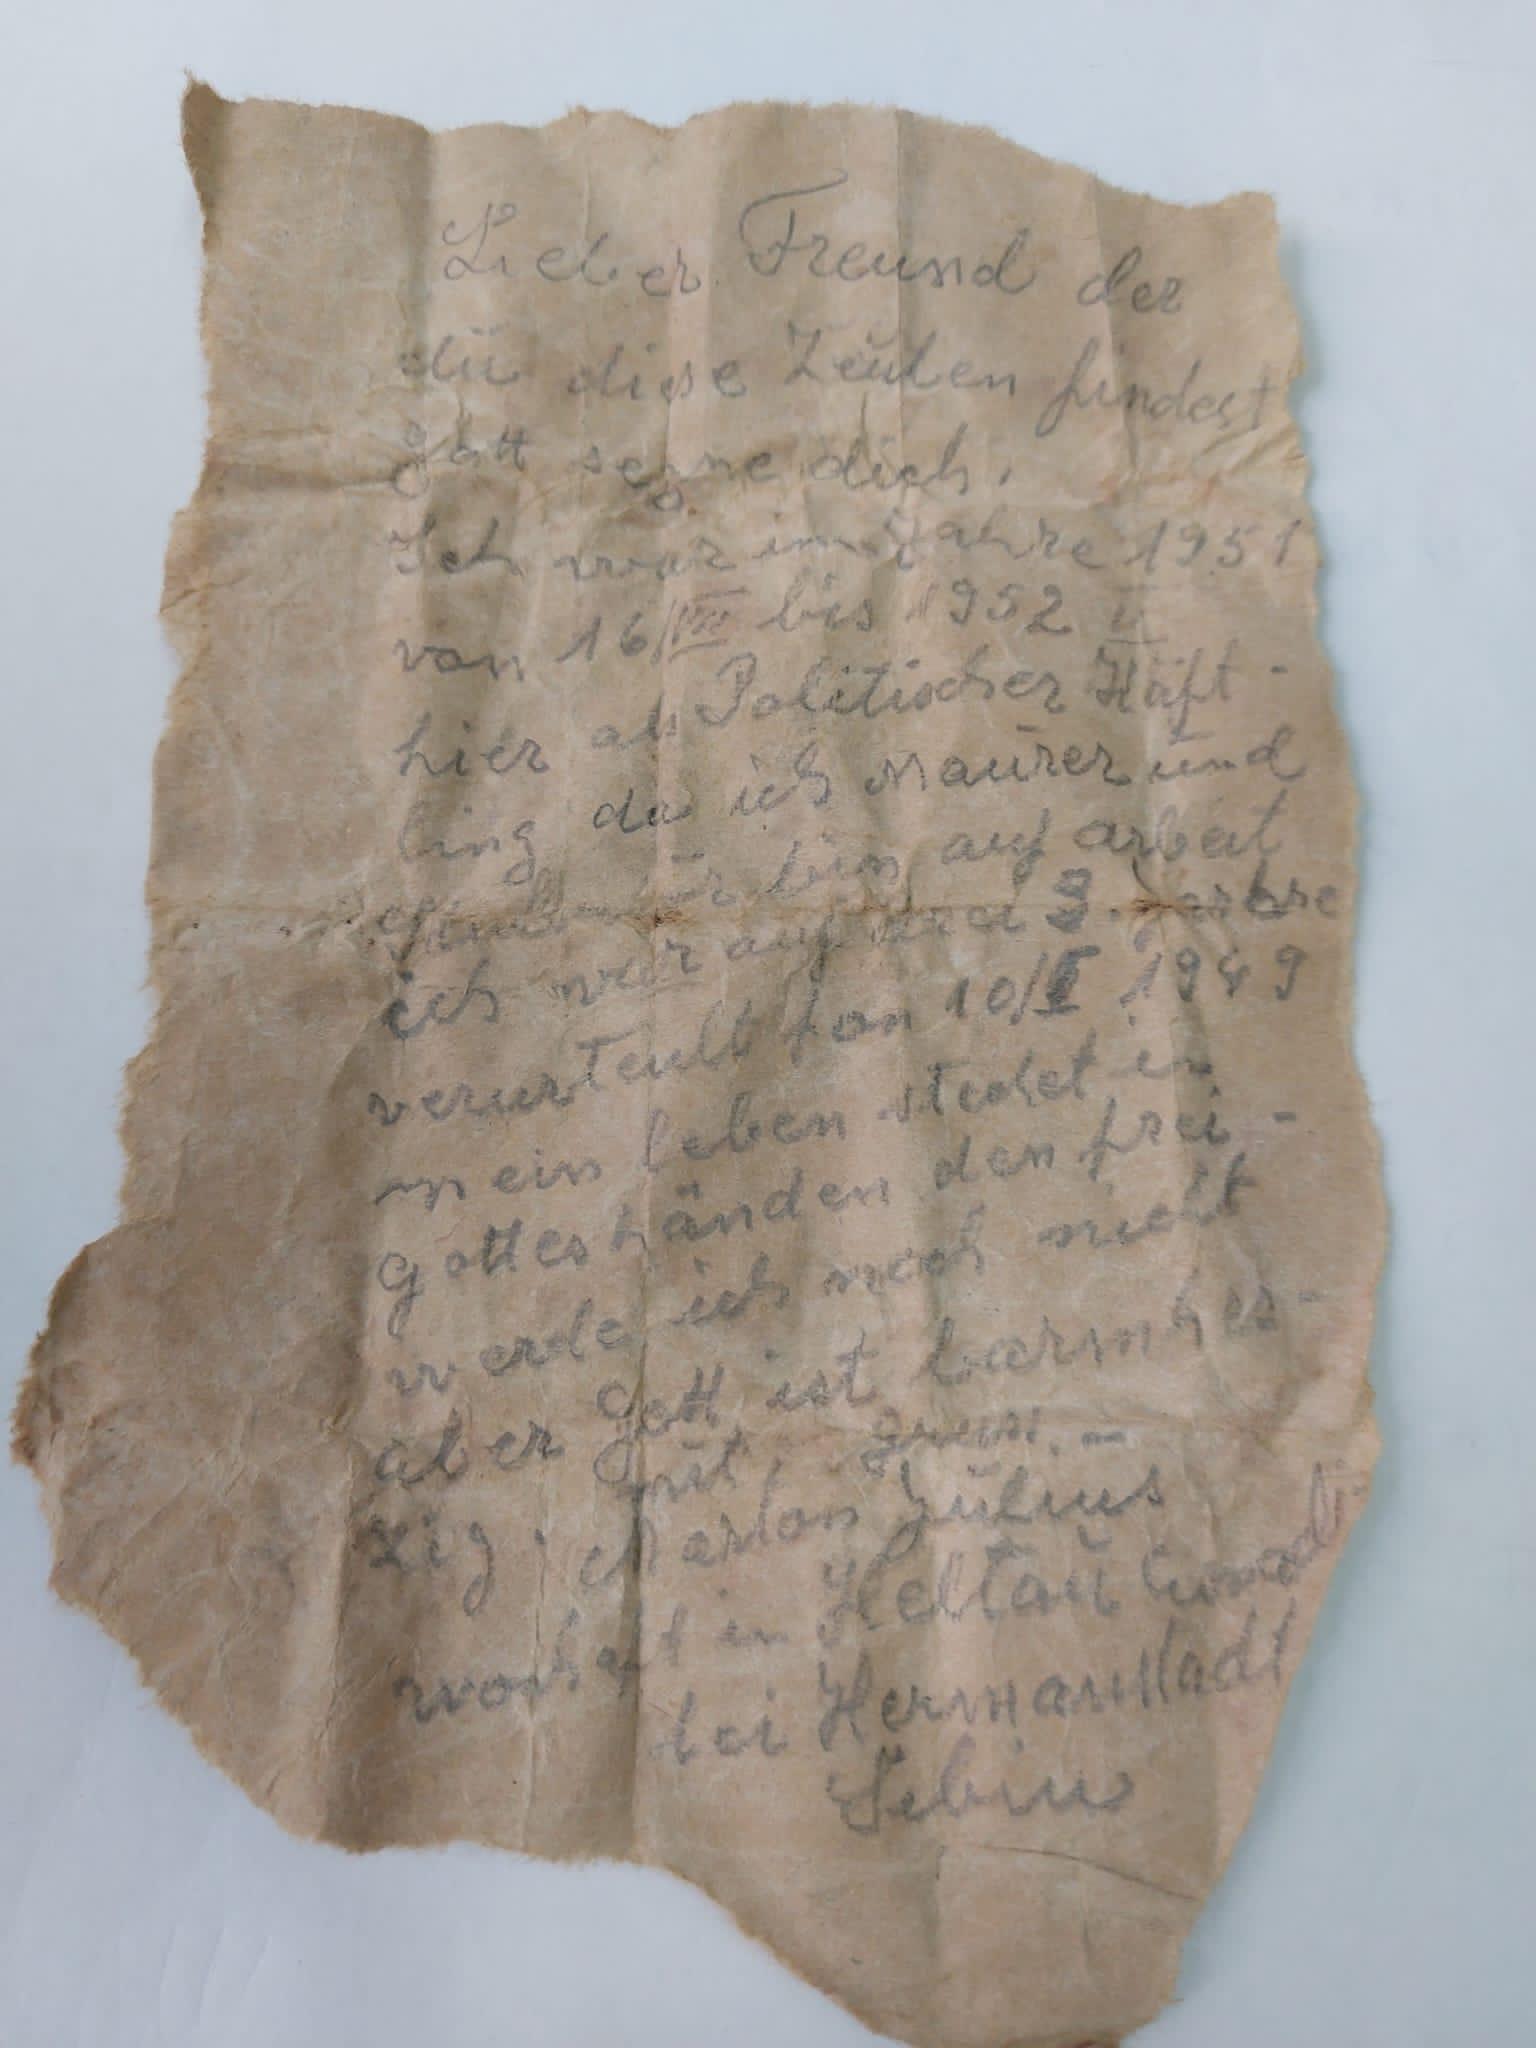 Lieber Freund der
dū diese Zeulen findest
gott segne dich.
Ich war im Jahre 1951
von 16/VII bis 1952 II
hier als Politischer Häft-
ling da ich Maūrer ūnd
bin auf arbeit
ich war auf drei 3. jarhre
verurteult fon 10/I 1949
mein leben stechet in
gottes händen den frei-
werde ich noch nicht
aber gott ist barmher-
zig. mit grus. -
Marton Jūlius
wohaft in Heltaū
bei Hermanstadt
Sebiu